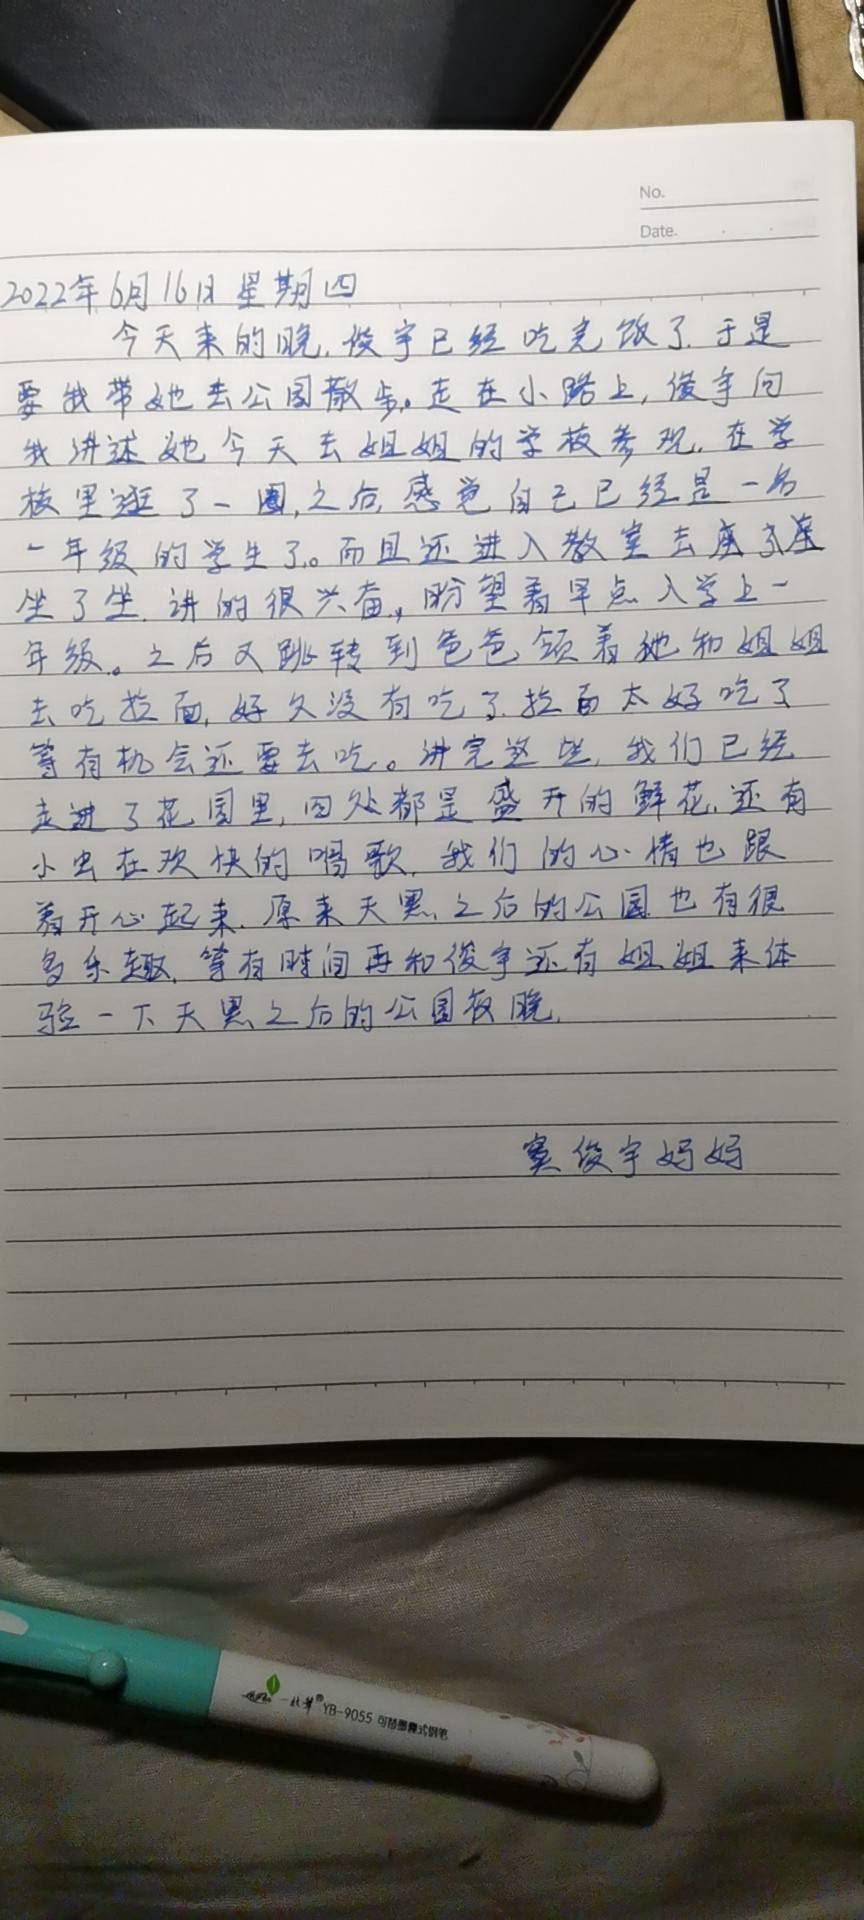 No.
Date.
2022年6月16日 星期四
今天来的晚,俊宇已经吃完饭了.于是
要我带她去公园散步。走在小路上,俊宇向
我讲述她今天去姐姐的学校参观,在学
校里逛了一圈,之后,感觉自己已经是一名
一年级的学生了。而且还进入教室去座了座
坐了坐.讲的很兴奋,盼望着早点入学上一
年级。之后又跳转到爸爸领着她和姐姐
去吃拉面,好久没有吃了.拉面太好吃了
等有机会还要去吃。讲完这些,我们已经
走进了花园里,四处都是盛开的鲜花,还有
小虫在欢快的唱歌,我们的心情也跟
着开心起来.原来天黑之后的公园也有很
多乐趣,等有时间再和俊宇还有姐姐来体
验一下天黑之后的公园夜晚.
窦俊宇妈妈
一枝笔® YB-9055 可替墨囊式钢笔